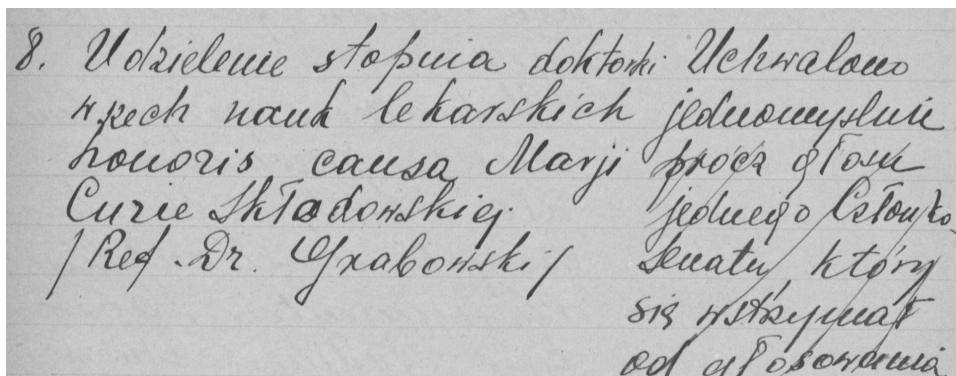 8. Udzielenie stopnia doktorki
wszech nauk lekarskich
honoris causa Marji
Curie Skłodowskiej.
/Ref. Dr. Grabowski/
Uchwalono
jednomyślnie
prócz głosu
jednego Członka
Senatu, który
się wstrzymał
od głosowania